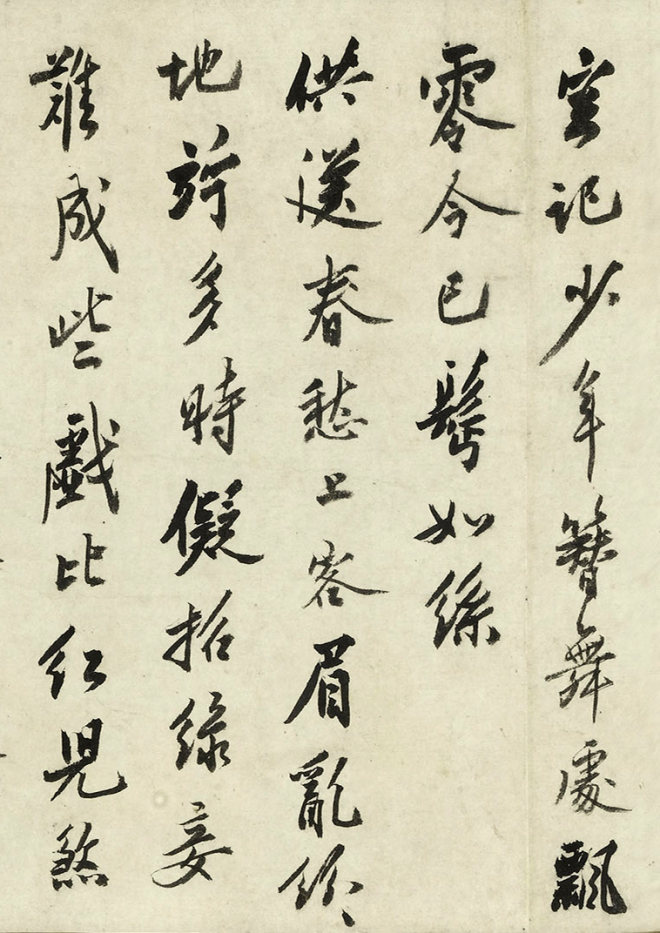 空記少年簪舞處飄
零今已鬢如絲
供送春愁上客眉亂紛〻
地竚多時儗招綠妾
難成些戲比紅兒煞